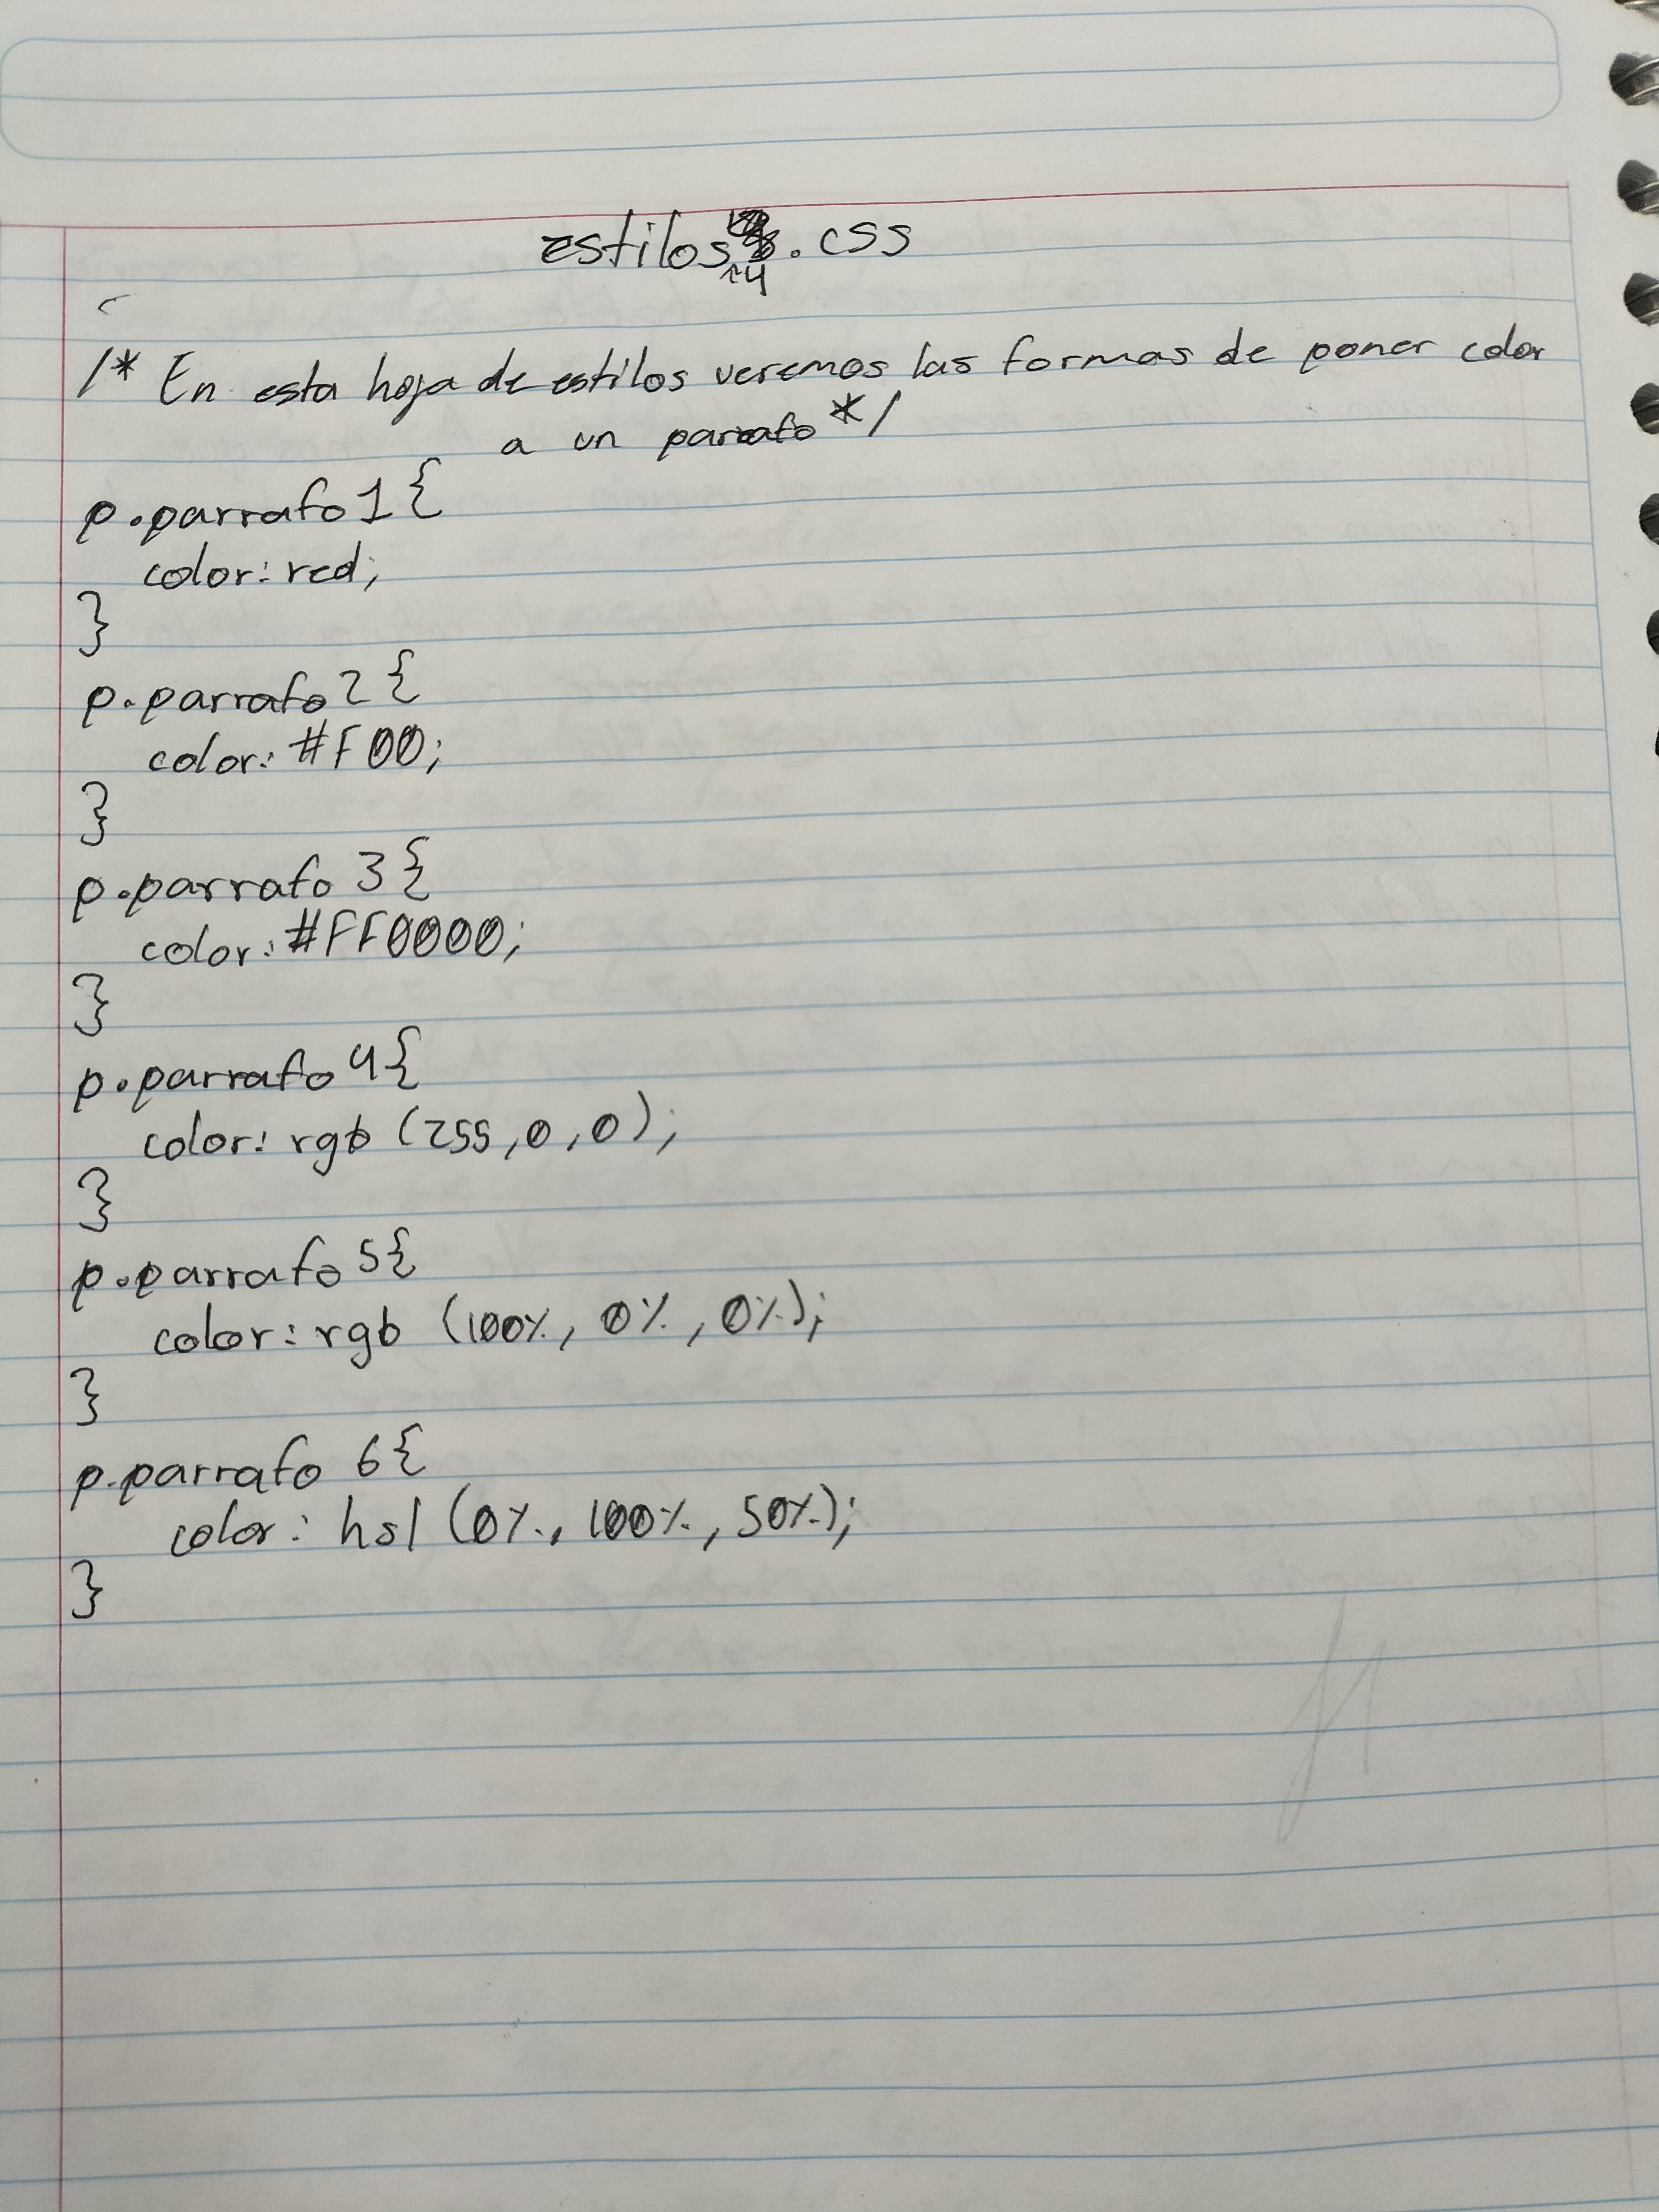 estilos14.css
/* En esta hoja de estilos veremos las formas de poner color
a un parrafo */
p.parrafo1{
color: red;
}
p.parrafo2{
color: #F00;
}
p.parrafo 3{
color: #FF0000;
}
p.parrafo 4{
color: rgb (255,0,0);
}
p.parrafo 5{
color: rgb (100%, 0%, 0%);
}
p.parrafo 6{
color: hsl (0%, 100%, 50%);
}